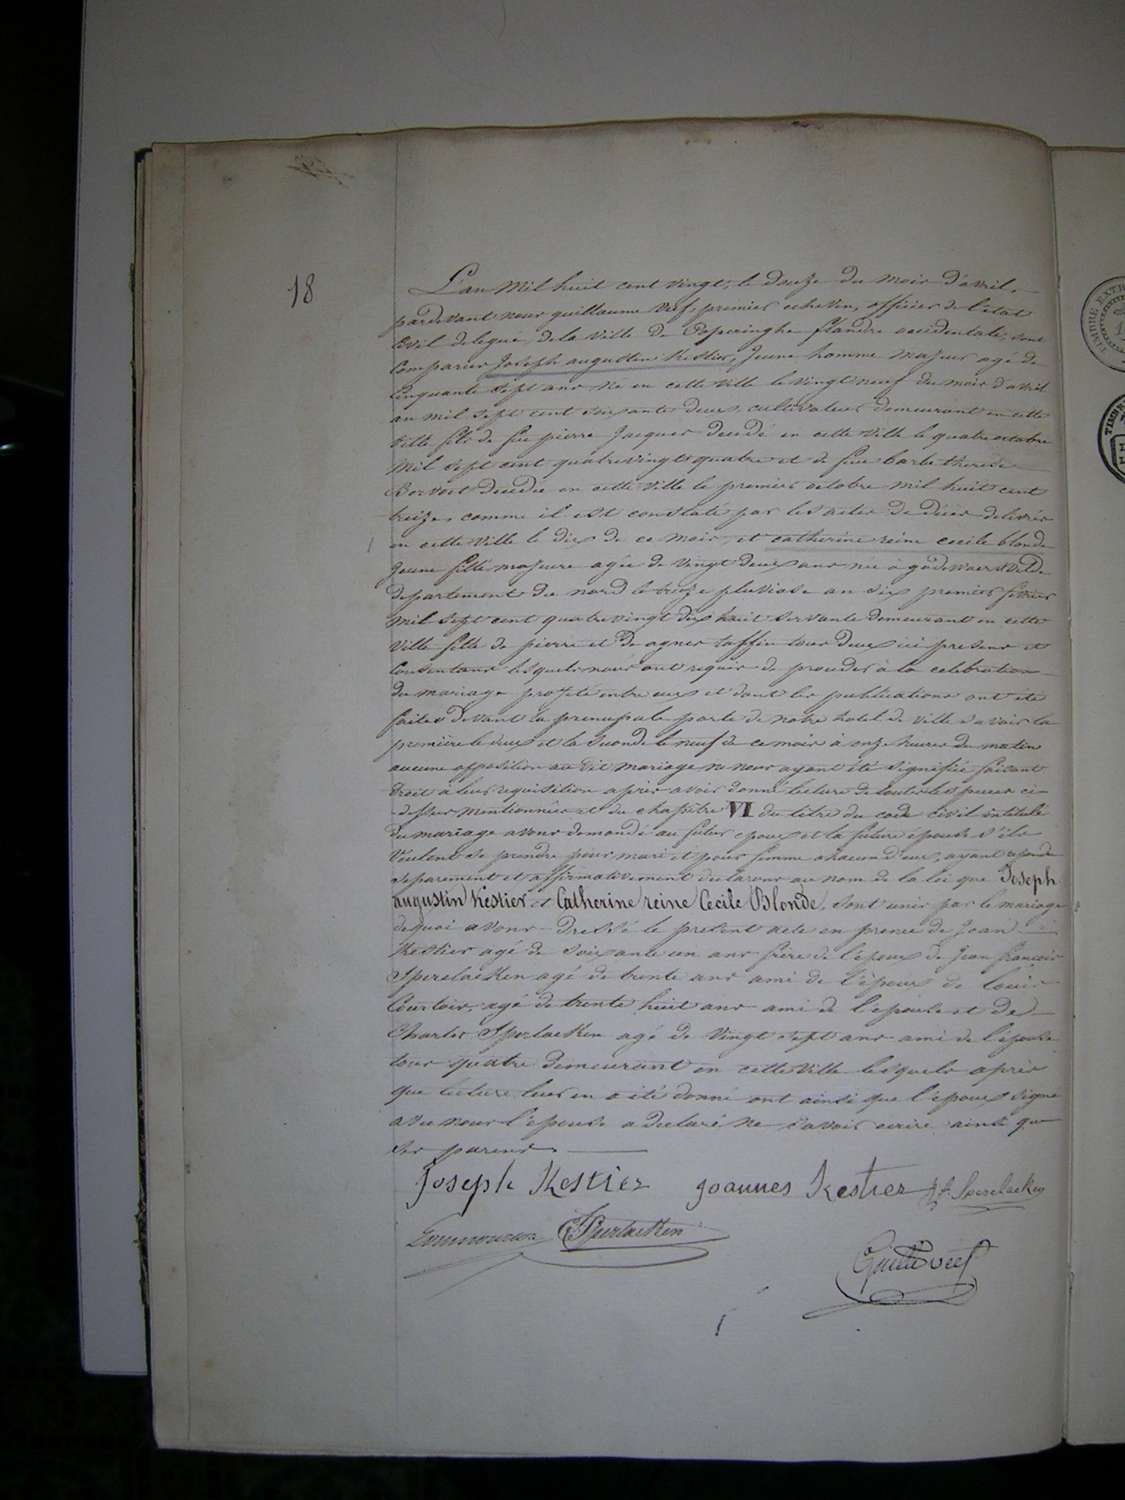 18
L'an Mil huit cent vingt, le douze du mois d'avril,
pardevant nous guillaume Veef, premier echevin, officier de l'état
Civil delegué, de la ville de Poperinghe flandre occidentale, sont
Comparus Joseph augustin Kestier, Jeune homme majeur agé de
Cinquante sept ans né en cette ville le vingt neuf du mois d'avril
an mil sept cent soixante deux, cultivateur demeurant en cette
ville fils de feu pierre Jacques decedé en cette ville le quatre octobre
Mil sept cent quatrevingt quatre et de feue barbe therese
decedée en cette ville le premier octobre mil huit cent
treize, comme il est constaté par les actes de décès delivrés
en cette ville le dix de ce mois, et catherine reine cecile blonde
Jeune fille majeure agée de vingt deux ans née à godewaersvelde
departement du nord le treize pluviose an six premier fevrier
Mil sept cent quatre vingt dix huit servante demeurant en cette
Ville fille de pierre et de agnes taffin tous deux ici presens et
Consentans lesquels nous ont requis de proceder à la celebration
du mariage projeté entre eux et dont les publications ont été
faites devant la principale porte de notre hotel de ville savoir la
première le deux et la seconde le neuf de ce mois à onze heures du matin
aucune opposition au dit mariage ne nous ayant été signifiée faisant
droit à leur requisition après avoir donné lecture de toutes les pieces ci
dessus mentionnées et du chapitre VI du titre du code civil intitulé
du mariage avons demandé au futur epoux et la future épouse s'ils
Veulent se prendre pour mari et pour femme chacun d'eux, ayant repondu
separement et affirmativement declarons au nom de la loi que Joseph
augustin Kestier et Catherine reine Cecile Blonde, sont unis par le mariage
de quoi avons dressé le present acte en presence de Joan
Kestier agé de soixante un ans frère de l'époux de Jean françois
Sperlaeken agé de trente ans ami de l'époux de louis
Courtois, agé de trente huit ans ami de l'épouse et de
Charles Sperlaeken agé de vingt sept ans ami de l'épouse
tous quatre demeurant en cette ville lesquels après
que lecture leur en a été donné ont ainsi que l'epoux signé
avec nous l'épouse a declaré ne savoir ecrire ainsi que
ses parens
Joseph Kestier Joannes Kestier J.f. Sperlaeken
C Sperlaeken
Guille Veef
TIMBRE EXTR